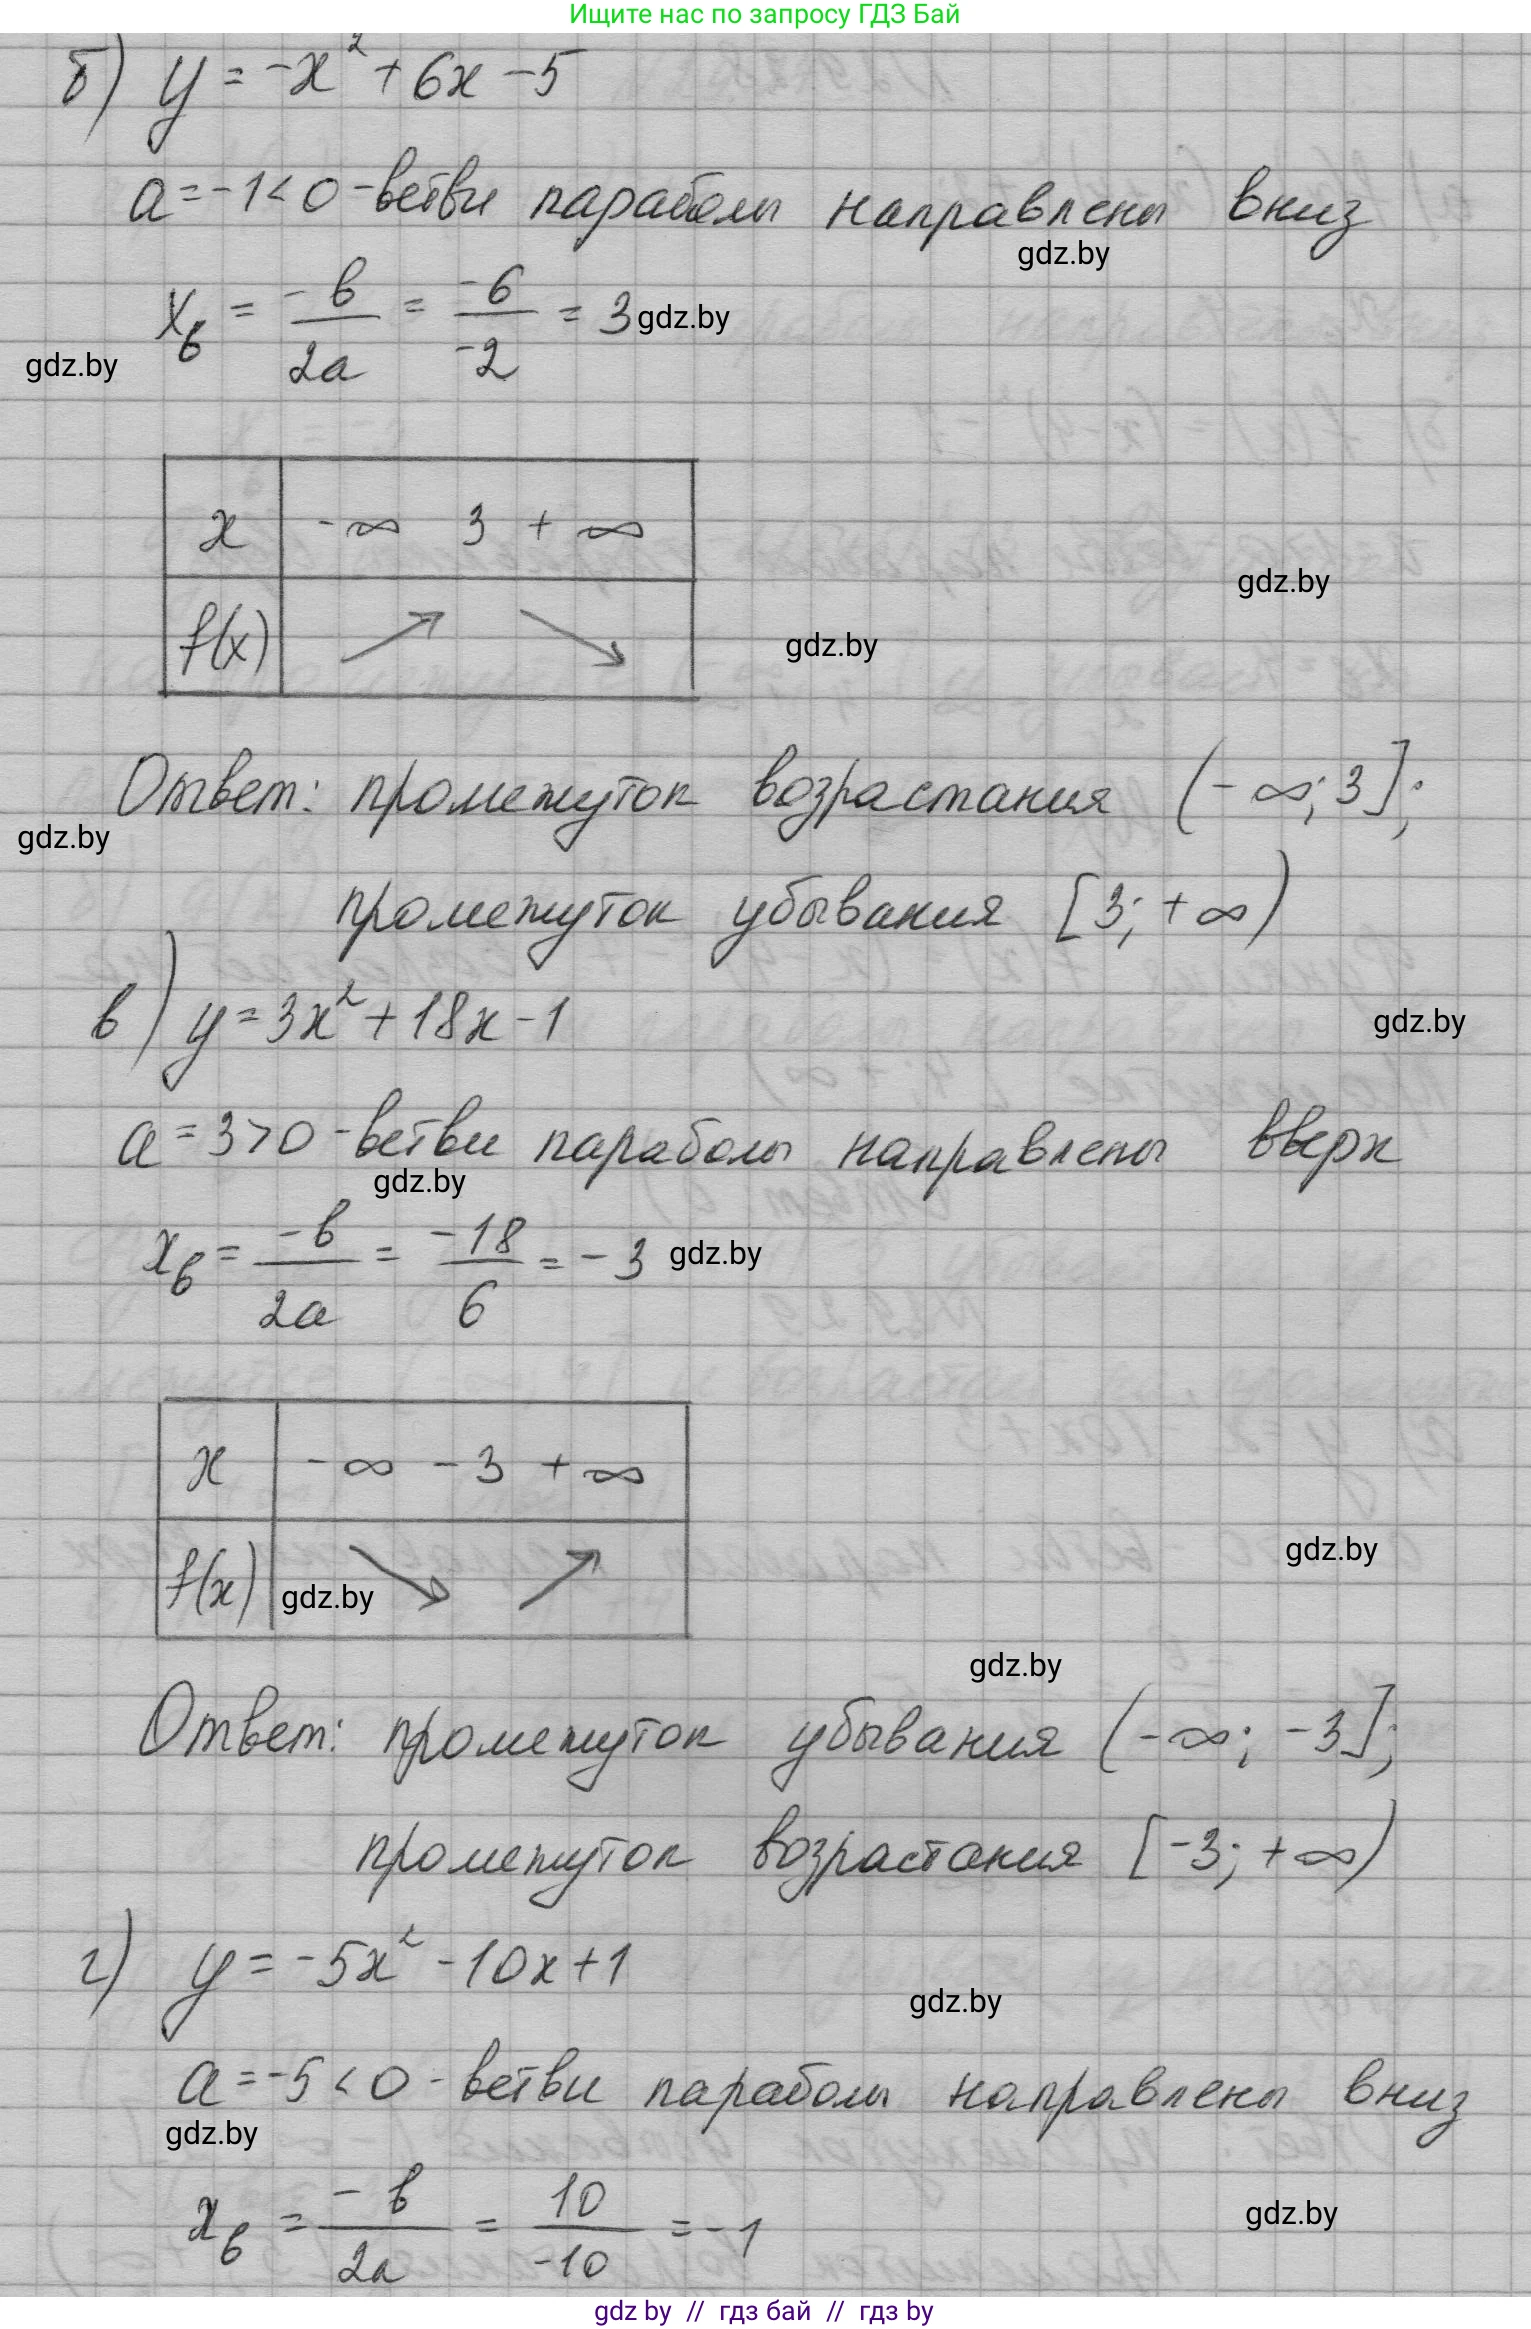 Ищите нас по запросу ГДЗ Бай
б) y = -x² + 6x - 5
a = -1 < 0 - ветви параболы направлены вниз
gdz.by
x_в = -в/2a = -6/-2 = 3 gdz.by
gdz.by
x -∞ 3 +∞
gdz.by
f(x) ↗ ↘
gdz.by
Ответ: промежуток возрастания (-∞; 3];
gdz.by
промежуток убывания [3; +∞)
в) y = 3x² + 18x - 1
gdz.by
a = 3 > 0 - ветви параболы направлены вверх
gdz.by
x_в = -в/2a = -18/6 = -3 gdz.by
x -∞ -3 +∞
gdz.by
f(x) gdz.by ↘ ↗
gdz.by
Ответ: промежуток убывания (-∞; -3];
промежуток возрастания [-3; +∞)
г) y = -5x² - 10x + 1
gdz.by
a = -5 < 0 - ветви параболы направлены вниз
gdz.by
x_в = -в/2a = 10/-10 = -1
gdz.by
gdz by // гдз бай // гдз by